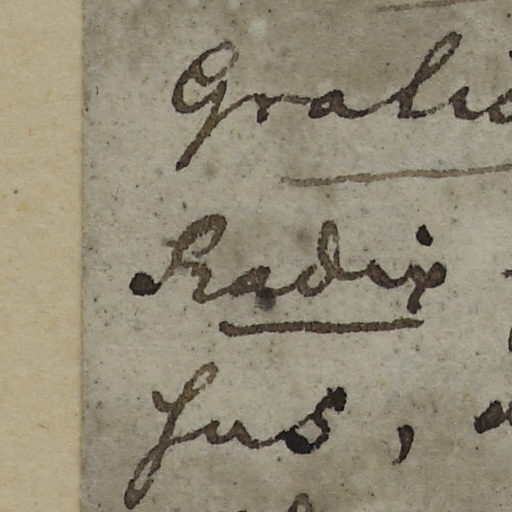 Grati
Radix
fus,